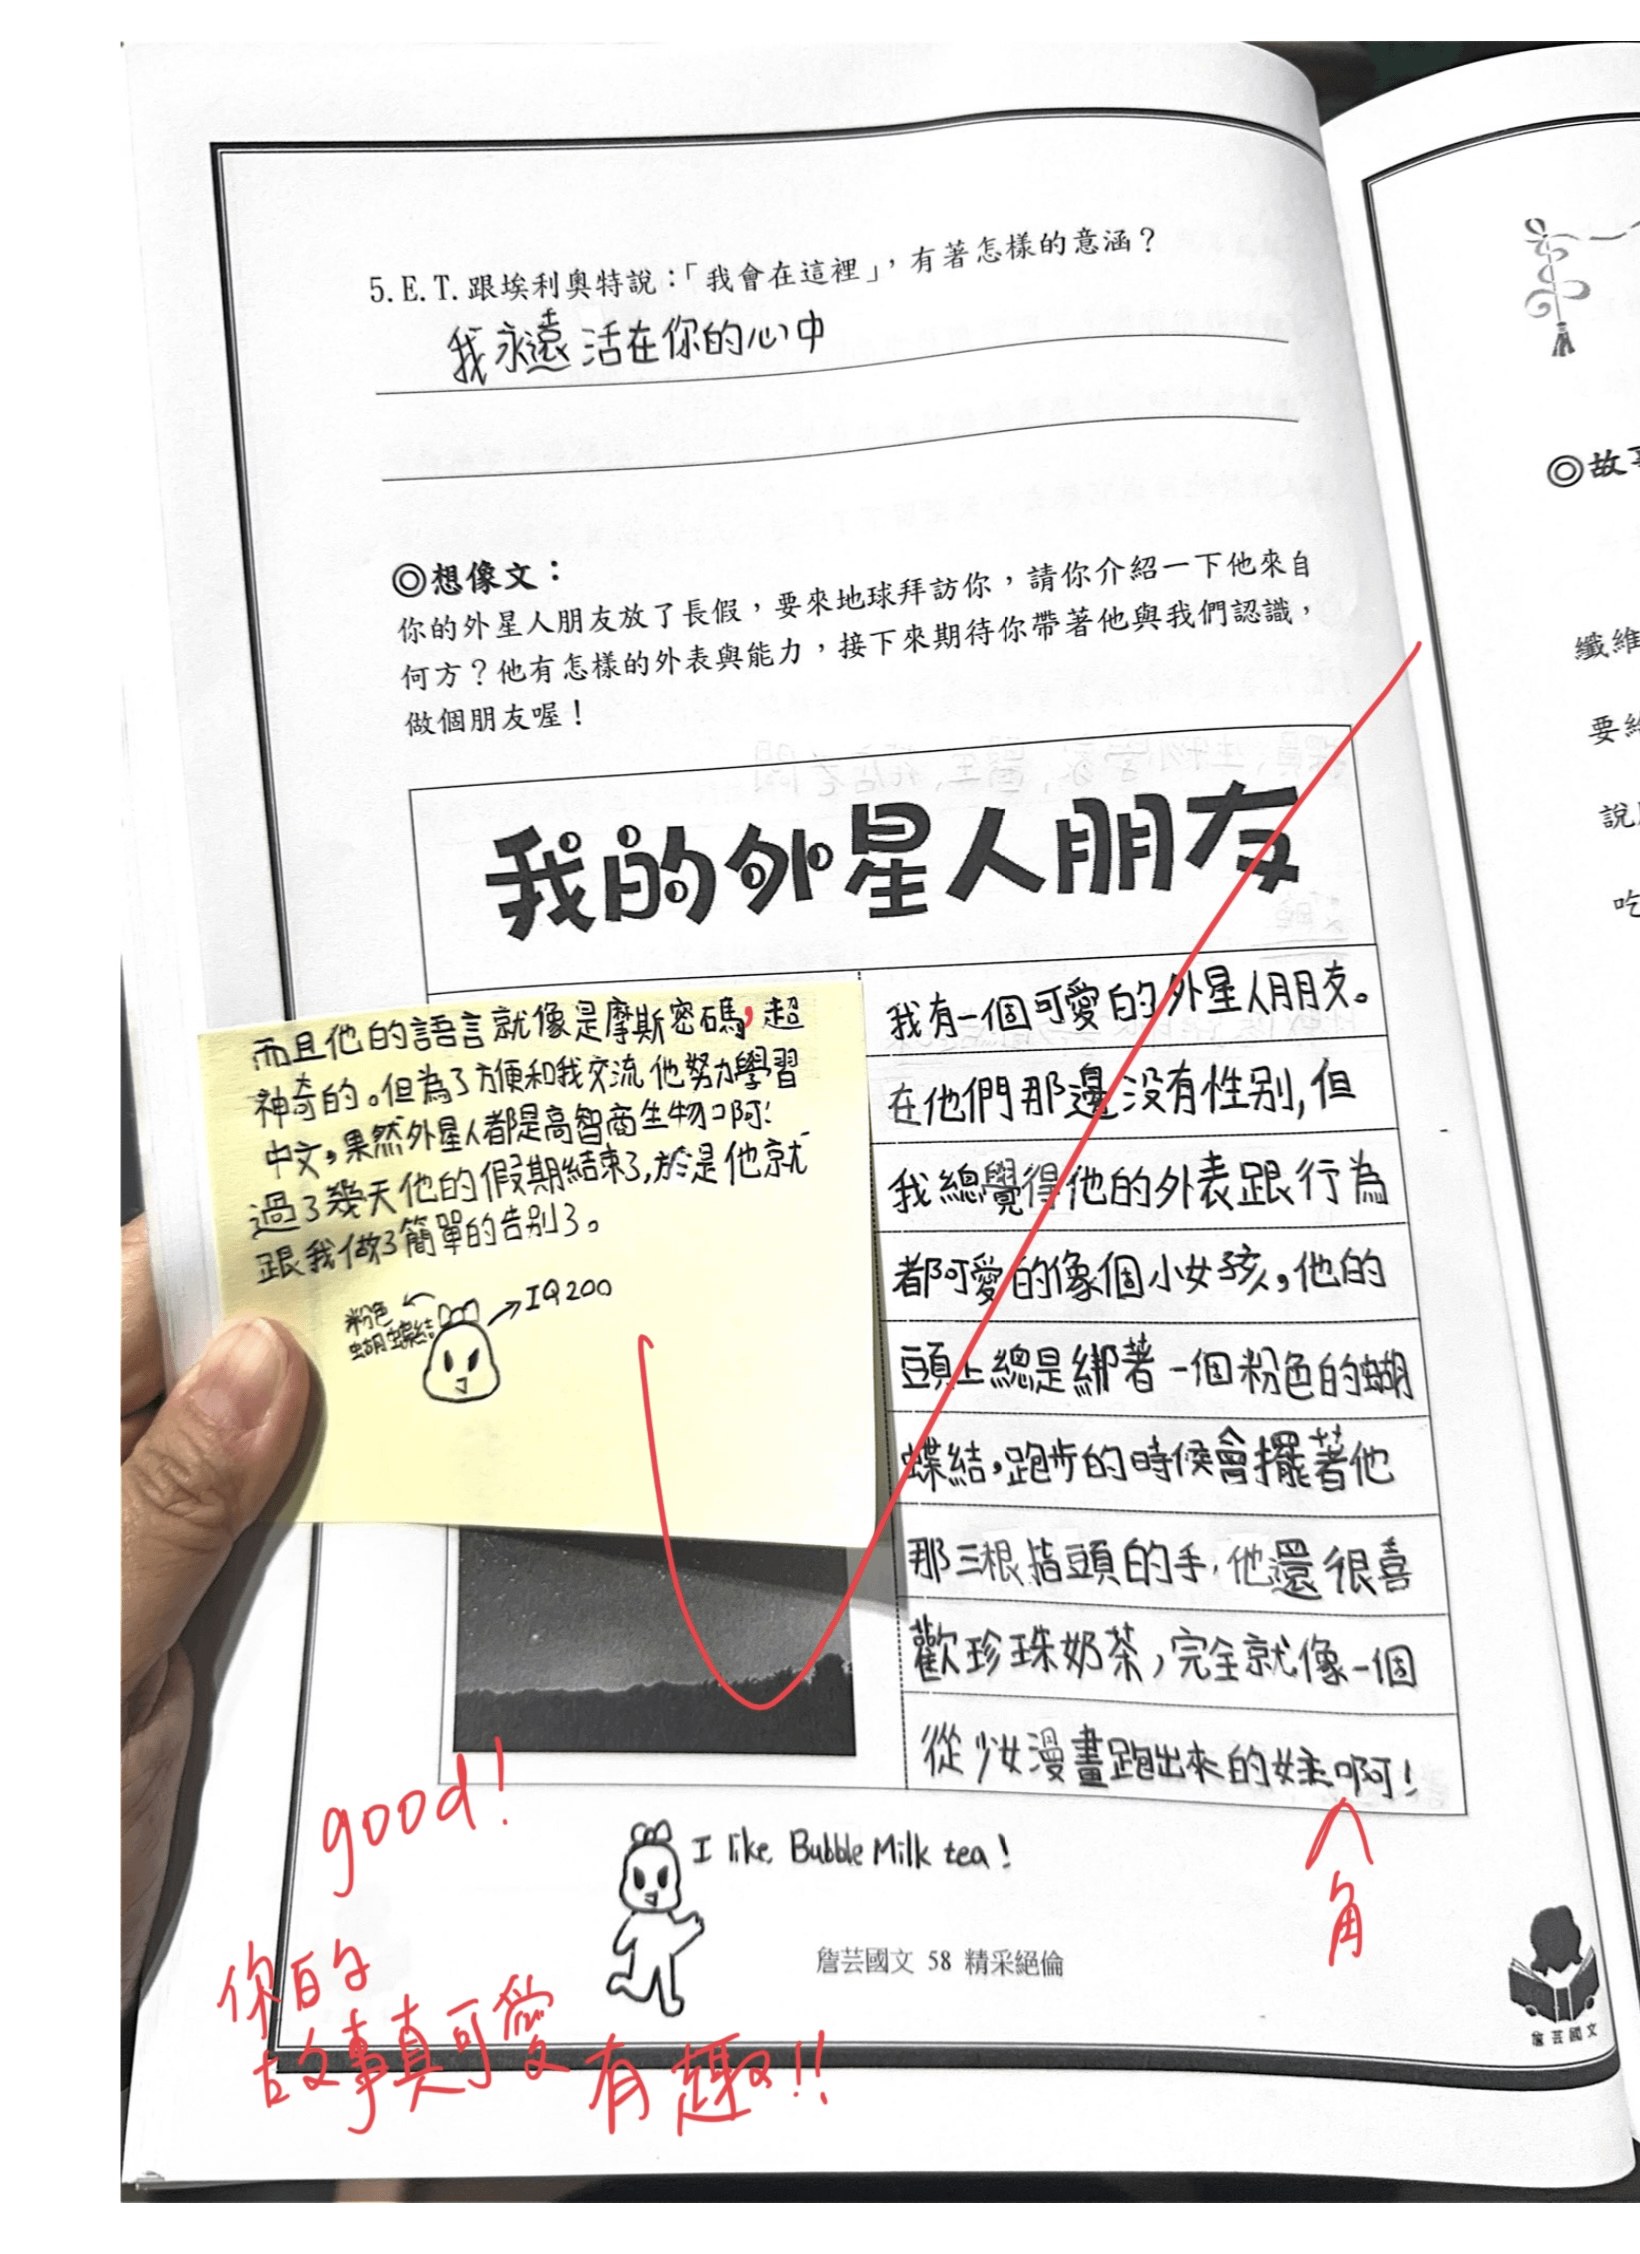 5.E.T.跟埃利奧特說：「我會在這裡」，有著怎樣的意涵？
我永遠活在你的心中
◎想像文：
你的外星人朋友放了長假，要來地球拜訪你，請你介紹一下他來自
何方？他有怎樣的外表與能力，接下來期待你帶著他與我們認識，
做個朋友喔！
我的外星人朋友
我有一個可愛的外星人朋友。
在他們那邊沒有性別，但
我總覺得他的外表跟行為
都可愛的像個小女孩，他的
頭上總是綁著一個粉色的蝴
蝶結，跑步的時候會擺著他
那三根指頭的手，他還很喜
歡珍珠奶茶，完全就像一個
從少女漫畫跑出來的女主啊！
角
而且他的語言就像是摩斯密碼，超
神奇的。但為了方便和我交流他努力學習
中文，果然外星人都是高智商生物啊！
過了幾天他的假期結束了，於是他就
跟我做了簡單的告別了。
粉色
蝴蝶結
IQ200
I like Bubble Milk tea！
good！
你的
故事真可愛有趣！！
詹芸國文 58 精采絕倫
詹芸國文
◎故
纖維
要
說
吃